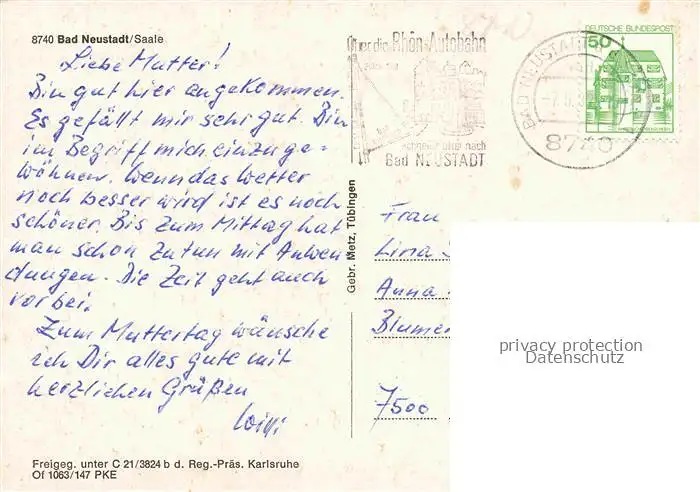 8740 Bad Neustadt/Saale
Liebe Mutter!
Bin gut hier angekommen.
Es gefällt mir sehr gut. Bin
im Begriff mich einzuge-
wöhnen. Wenn das Wetter
noch besser wird ist es noch
schöner. Bis zum Mittag hat
man schon zu tun mit Anwen
dungen. Die Zeit geht auch
vorbei.
Zum Muttertag wünsche
ich Dir alles gute mit
herzlichen Grüßen
Willi
Freigeg. unter C 21/3824 b d. Reg.-Präs. Karlsruhe
Of 1063/147 PKE
Gebr. Metz, Tübingen
über die Rhön-Autobahn
nach
Bad NEUSTADT
BAD NEUSTADT
8740
DEUTSCHE BUNDESPOST
50
Frau
Lina
Anna
Blumen
7500
privacy protection
Datenschutz